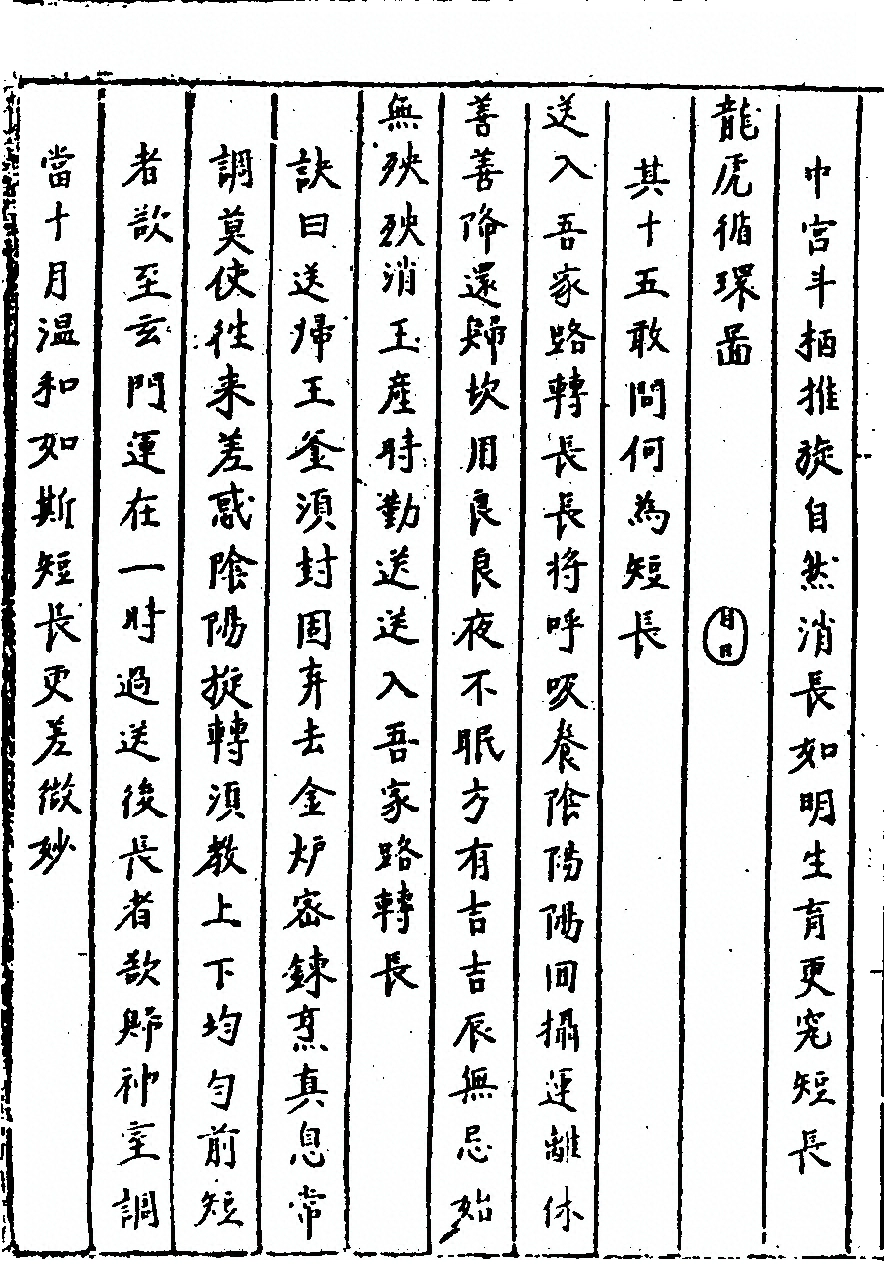 中宮斗柄推旋自然消長如明生育更究短長
龍虎循環啚
其十五敢問何為短長
送入吾家路轉長長將呼吸養陰陽陽回攝運離休
善善降還歸坎用良良夜不眠方有吉吉辰無忌始
無殃殃消王產時勤送送入吾家路轉長
訣曰送帰王釜須封固弃去金炉宻鍊烹真息常
調莫使徃来差惑陰陽旋轉須教上下均勻前短
者欲至玄門運在一時過送後長者欲歸神室調
當十月温和如斯短長更差微妙